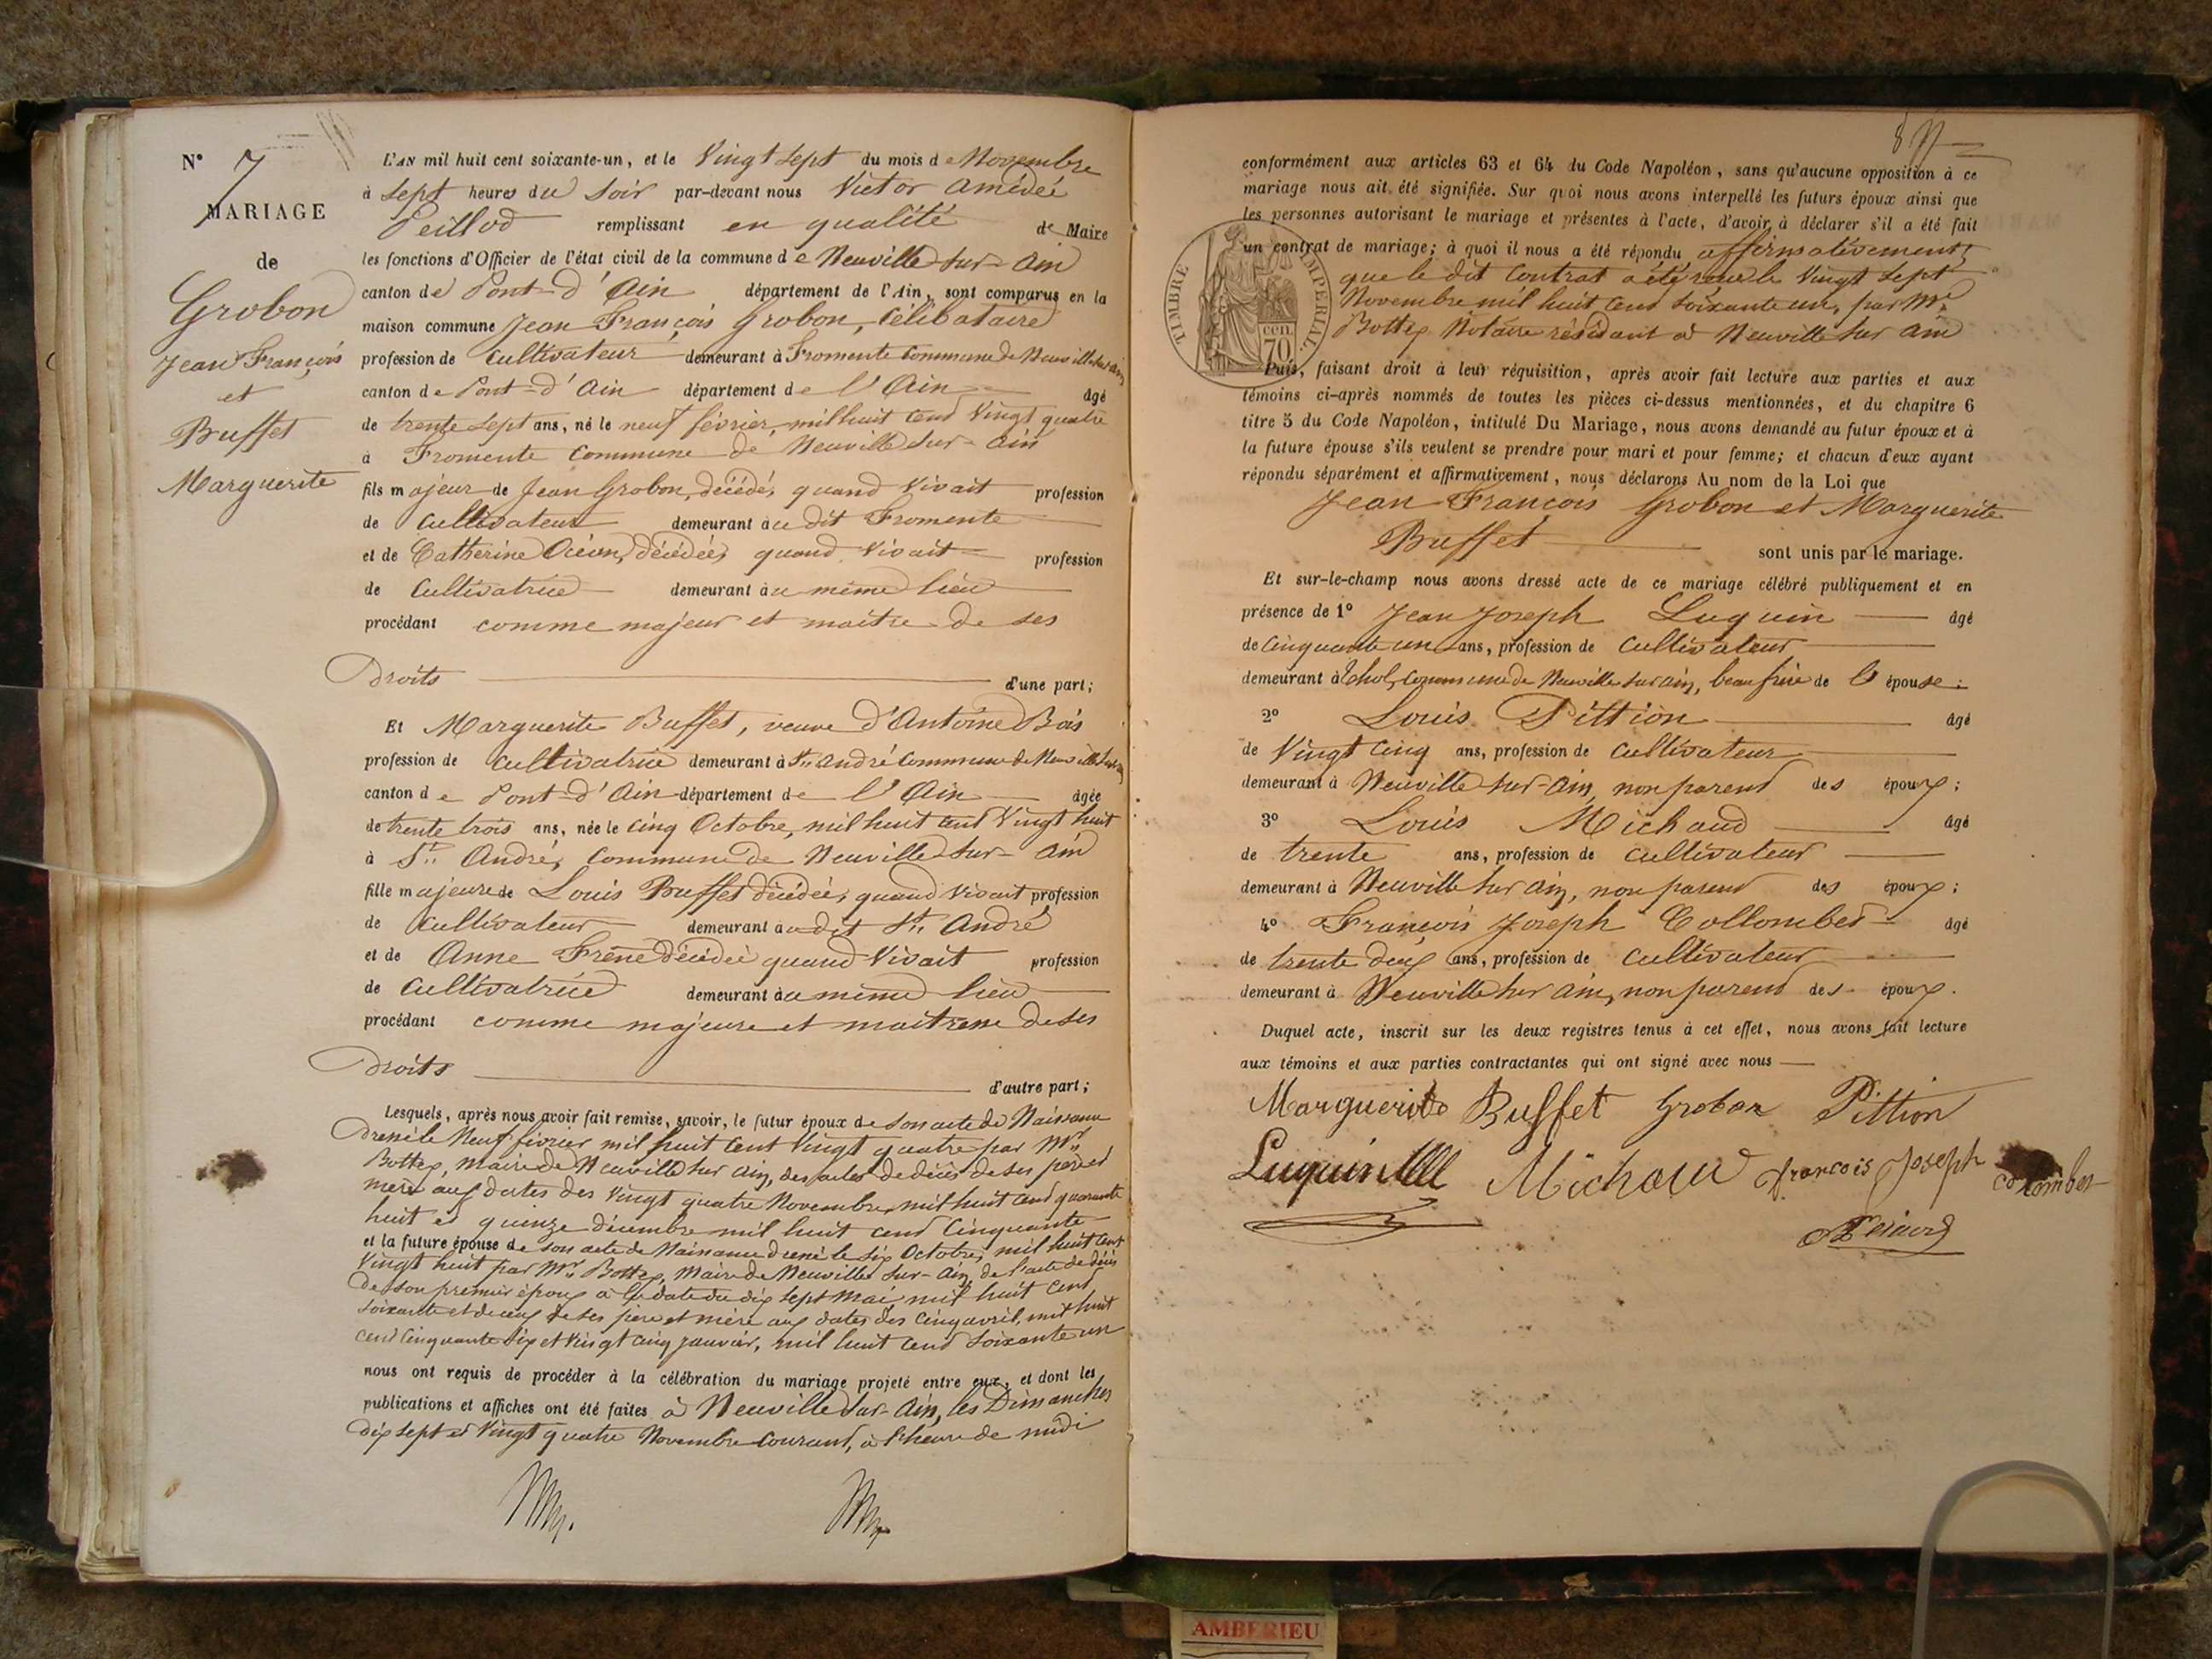 N° 7
MARIAGE
de
Grobon
Jean François
et
Buffet
Marguerite
L'AN mil huit cent soixante-un, et le Vingt Sept du mois de Novembre
à Sept heures du Soir par-devant nous Victor Amédeé
Peillod remplissant en qualité de Maire
les fonctions d'Officier de l'état civil de la commune de Neuville sur Ain
canton de Pont-d'Ain département de l'Ain, sont comparus en la
maison commune Jean François Grobon, Célibataire
profession de Cultivateur demeurant à Fromente Commune de Neuville sur Ain
canton de Pont-d'Ain département de l'Ain âgé
de trente Sept ans, né le neuf février, mil huit Cent Vingt quatre
à Fromente Commune de Neuville sur-Ain
fils majeur de Jean Grobon, décédé, quand Vivait profession
de Cultivateur demeurant au dit Fromente
et de Catherine décédée, quand Vivait profession
de Cultivatrice demeurant au même lieu
procédant comme majeur et maître de ses
Droits d'une part;
Et Marguerite Buffet, veuve d'Antoine Bois
profession de Cultivatrice demeurant à St. André Commune de Neuville sur Ain
canton de Pont-d'Ain département de l'Ain âgée
de trente trois ans, née le Cinq Octobre, mil huit cent Vingt huit
à St. André, Commune de Neuville sur-Ain
fille majeure de Louis Buffet décédé, quand Vivait profession
de Cultivateur demeurant au dit St. André
et de Anne Frêne décédée quand Vivait profession
de Cultivatrice demeurant au même lieu
procédant comme majeure et maitresse de ses
Droits d'autre part;
Lesquels, après nous avoir fait remise, savoir, le futur époux de Son acte de Naissance
Dressé le Neuf février mil huit Cent Vingt quatre par Mr.
Bottex, Maire de Neuville sur Ain, des actes de décès de ses père et
mère aux dates des Vingt quatre Novembre, mil huit cent quarante
huit et quinze décembre mil huit cent Cinquante
et la future épouse de Son acte de Naissance dressé le Six Octobre, mil huit Cent
Vingt huit par Mr. Bottex, Maire de Neuville Sur-Ain, de l'acte de décès
de son premier époux à la date du dix sept Mai mil huit cent
Soixante et de ceux de ses père et mère aux dates des Cinq avril, mil huit
cent Cinquante Six et Vingt Cinq janvier, mil huit Cent Soixante un
nous ont requis de procéder à la célébration du mariage projeté entre eux, et dont les
publications et affiches ont été faites à Neuville sur-Ain, les Dimanches
dix sept et Vingt quatre Novembre Courant, à l'heure de midi
conformément aux articles 63 et 64 du Code Napoléon, sans qu'aucune opposition à ce
mariage nous ait été signifiée. Sur quoi nous avons interpellé les futurs époux ainsi que
les personnes autorisant le mariage et présentes à l'acte, d'avoir à déclarer s'il a été fait
un contrat de mariage; à quoi il nous a été répondu affirmativement,
que le dit Contrat a été reçu le Vingt Sept
Novembre mil huit Cent Soixante un, par Me.
Bottex Notaire résidant à Neuville sur Ain
TIMBRE IMPERIAL
70 cen.
Puis, faisant droit à leur réquisition, après avoir fait lecture aux parties et aux
témoins ci-après nommés de toutes les pièces ci-dessus mentionnées, et du chapitre 6
titre 5 du Code Napoléon, intitulé Du Mariage, nous avons demandé au futur époux et à
la future épouse s'ils veulent se prendre pour mari et pour femme; et chacun d'eux ayant
répondu séparément et affirmativement, nous déclarons Au nom de la Loi que
Jean François Grobon et Marguerite
Buffet sont unis par le mariage.
Et sur-le-champ nous avons dressé acte de ce mariage célébré publiquement et en
présence de 1° Jean Joseph Luquin âgé
de Cinquante un ans, profession de Cultivateur
demeurant à Commune de Neuville sur Ain, beau frère de l'épouse;
2° Louis Pittion âgé
de Vingt Cinq ans, profession de Cultivateur
demeurant à Neuville sur-Ain, non parent des époux;
3° Louis Michaud âgé
de trente ans, profession de Cultivateur
demeurant à Neuville sur Ain, non parent des époux;
4° François Joseph Collombet âgé
de trente deux ans, profession de Cultivateur
demeurant à Neuville sur Ain, non parent des époux.
Duquel acte, inscrit sur les deux registres tenus à cet effet, nous avons fait lecture
aux témoins et aux parties contractantes qui ont signé avec nous
Marguerite Buffet Grobon Pittion
Luquin Michaud francois Joseph colombet
AMBERIEU